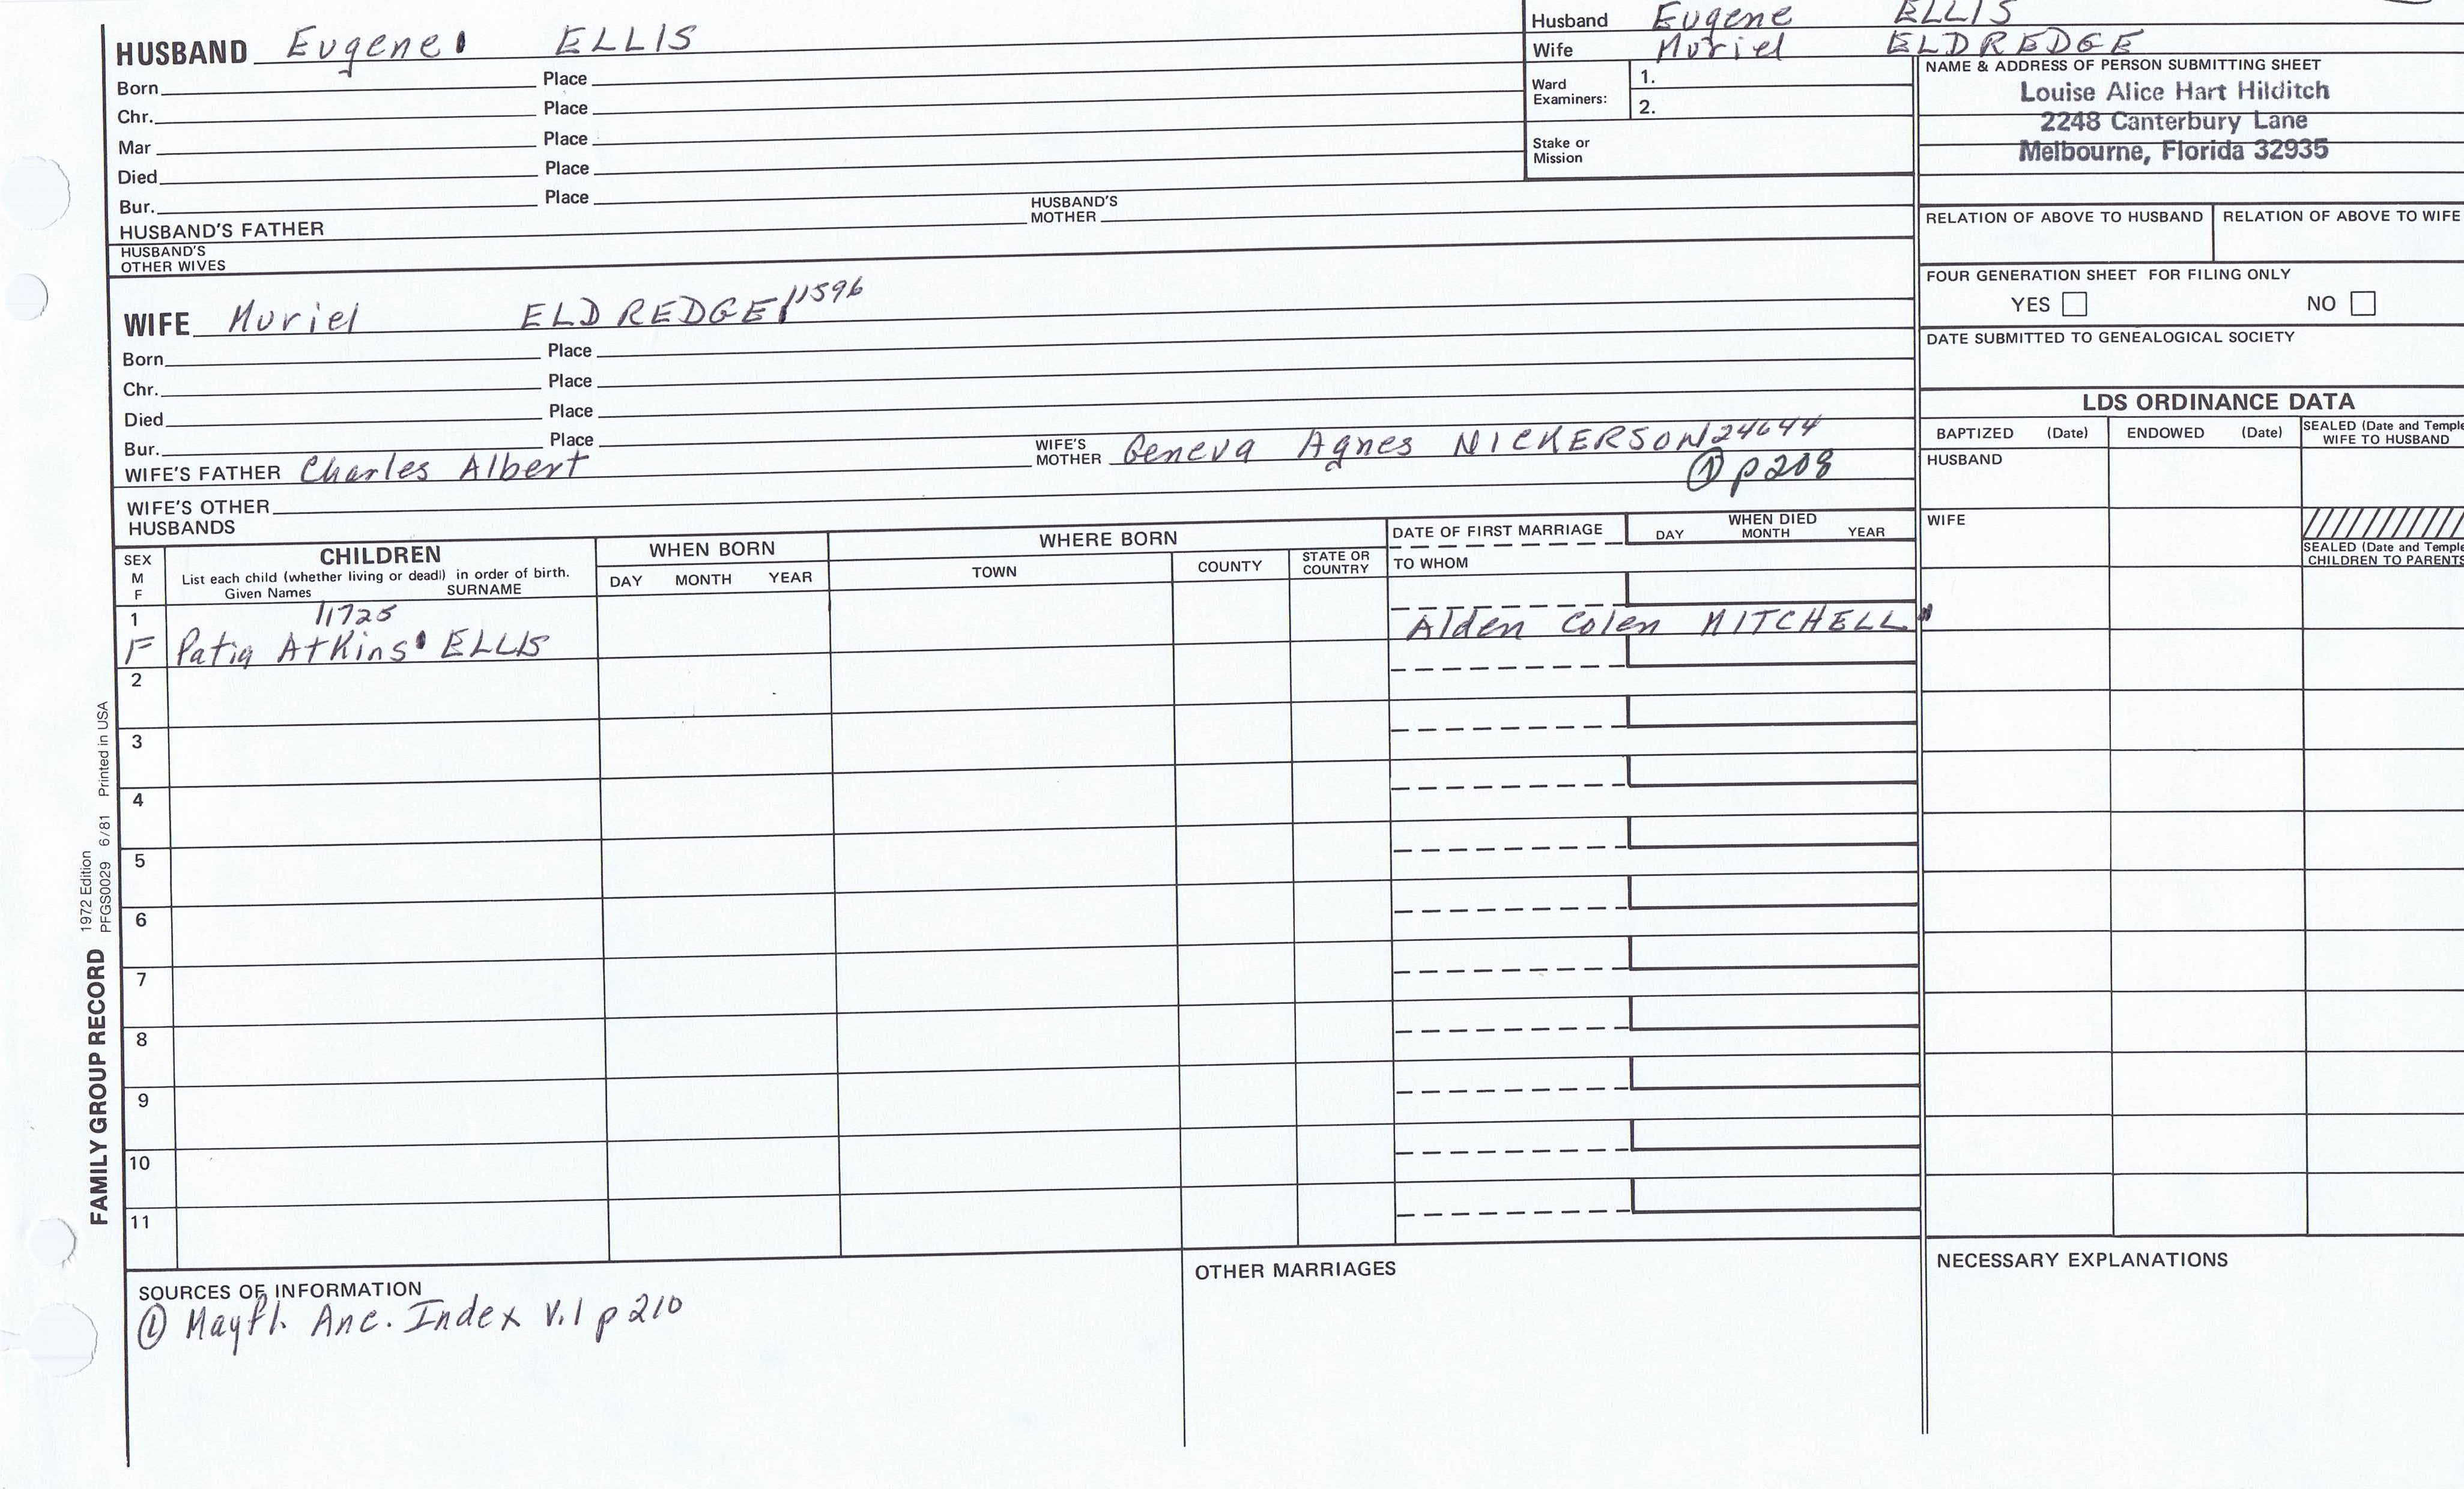 HUSBAND Eugene ELLIS
Born Place
Chr. Place
Mar Place
Died Place
Bur. Place
HUSBAND'S FATHER HUSBAND'S MOTHER
HUSBAND'S OTHER WIVES
Husband Eugene ELLIS
Wife Muriel ELDREDGE
Ward Examiners: 1.
2.
Stake or Mission
NAME & ADDRESS OF PERSON SUBMITTING SHEET
Louise Alice Hart Hilditch
2248 Canterbury Lane
Melbourne, Florida 32935
RELATION OF ABOVE TO HUSBAND RELATION OF ABOVE TO WIFE
FOUR GENERATION SHEET FOR FILING ONLY
YES NO
DATE SUBMITTED TO GENEALOGICAL SOCIETY
WIFE Muriel ELDREDGE 11596
Born Place
Chr. Place
Died Place
Bur. Place
WIFE'S FATHER Charles Albert WIFE'S MOTHER Geneva Agnes NICKERSON 24644
① p208
WIFE'S OTHER HUSBANDS
LDS ORDINANCE DATA
BAPTIZED (Date) ENDOWED (Date) SEALED (Date and Temple WIFE TO HUSBAND
HUSBAND
WIFE
SEALED (Date and Temple CHILDREN TO PARENTS
SEX M F CHILDREN WHEN BORN WHERE BORN DATE OF FIRST MARRIAGE WHEN DIED
List each child (whether living or dead) in order of birth.
Given Names SURNAME DAY MONTH YEAR TOWN COUNTY STATE OR COUNTRY TO WHOM DAY MONTH YEAR
1 11725
F Patia Atkins ELLIS Alden Colen MITCHELL
2
3
4
5
6
7
8
9
10
11
FAMILY GROUP RECORD 1972 Edition
PFGS0029 6/81 Printed in USA
SOURCES OF INFORMATION
① Mayfl. Anc. Index V.1 p 210
OTHER MARRIAGES
NECESSARY EXPLANATIONS